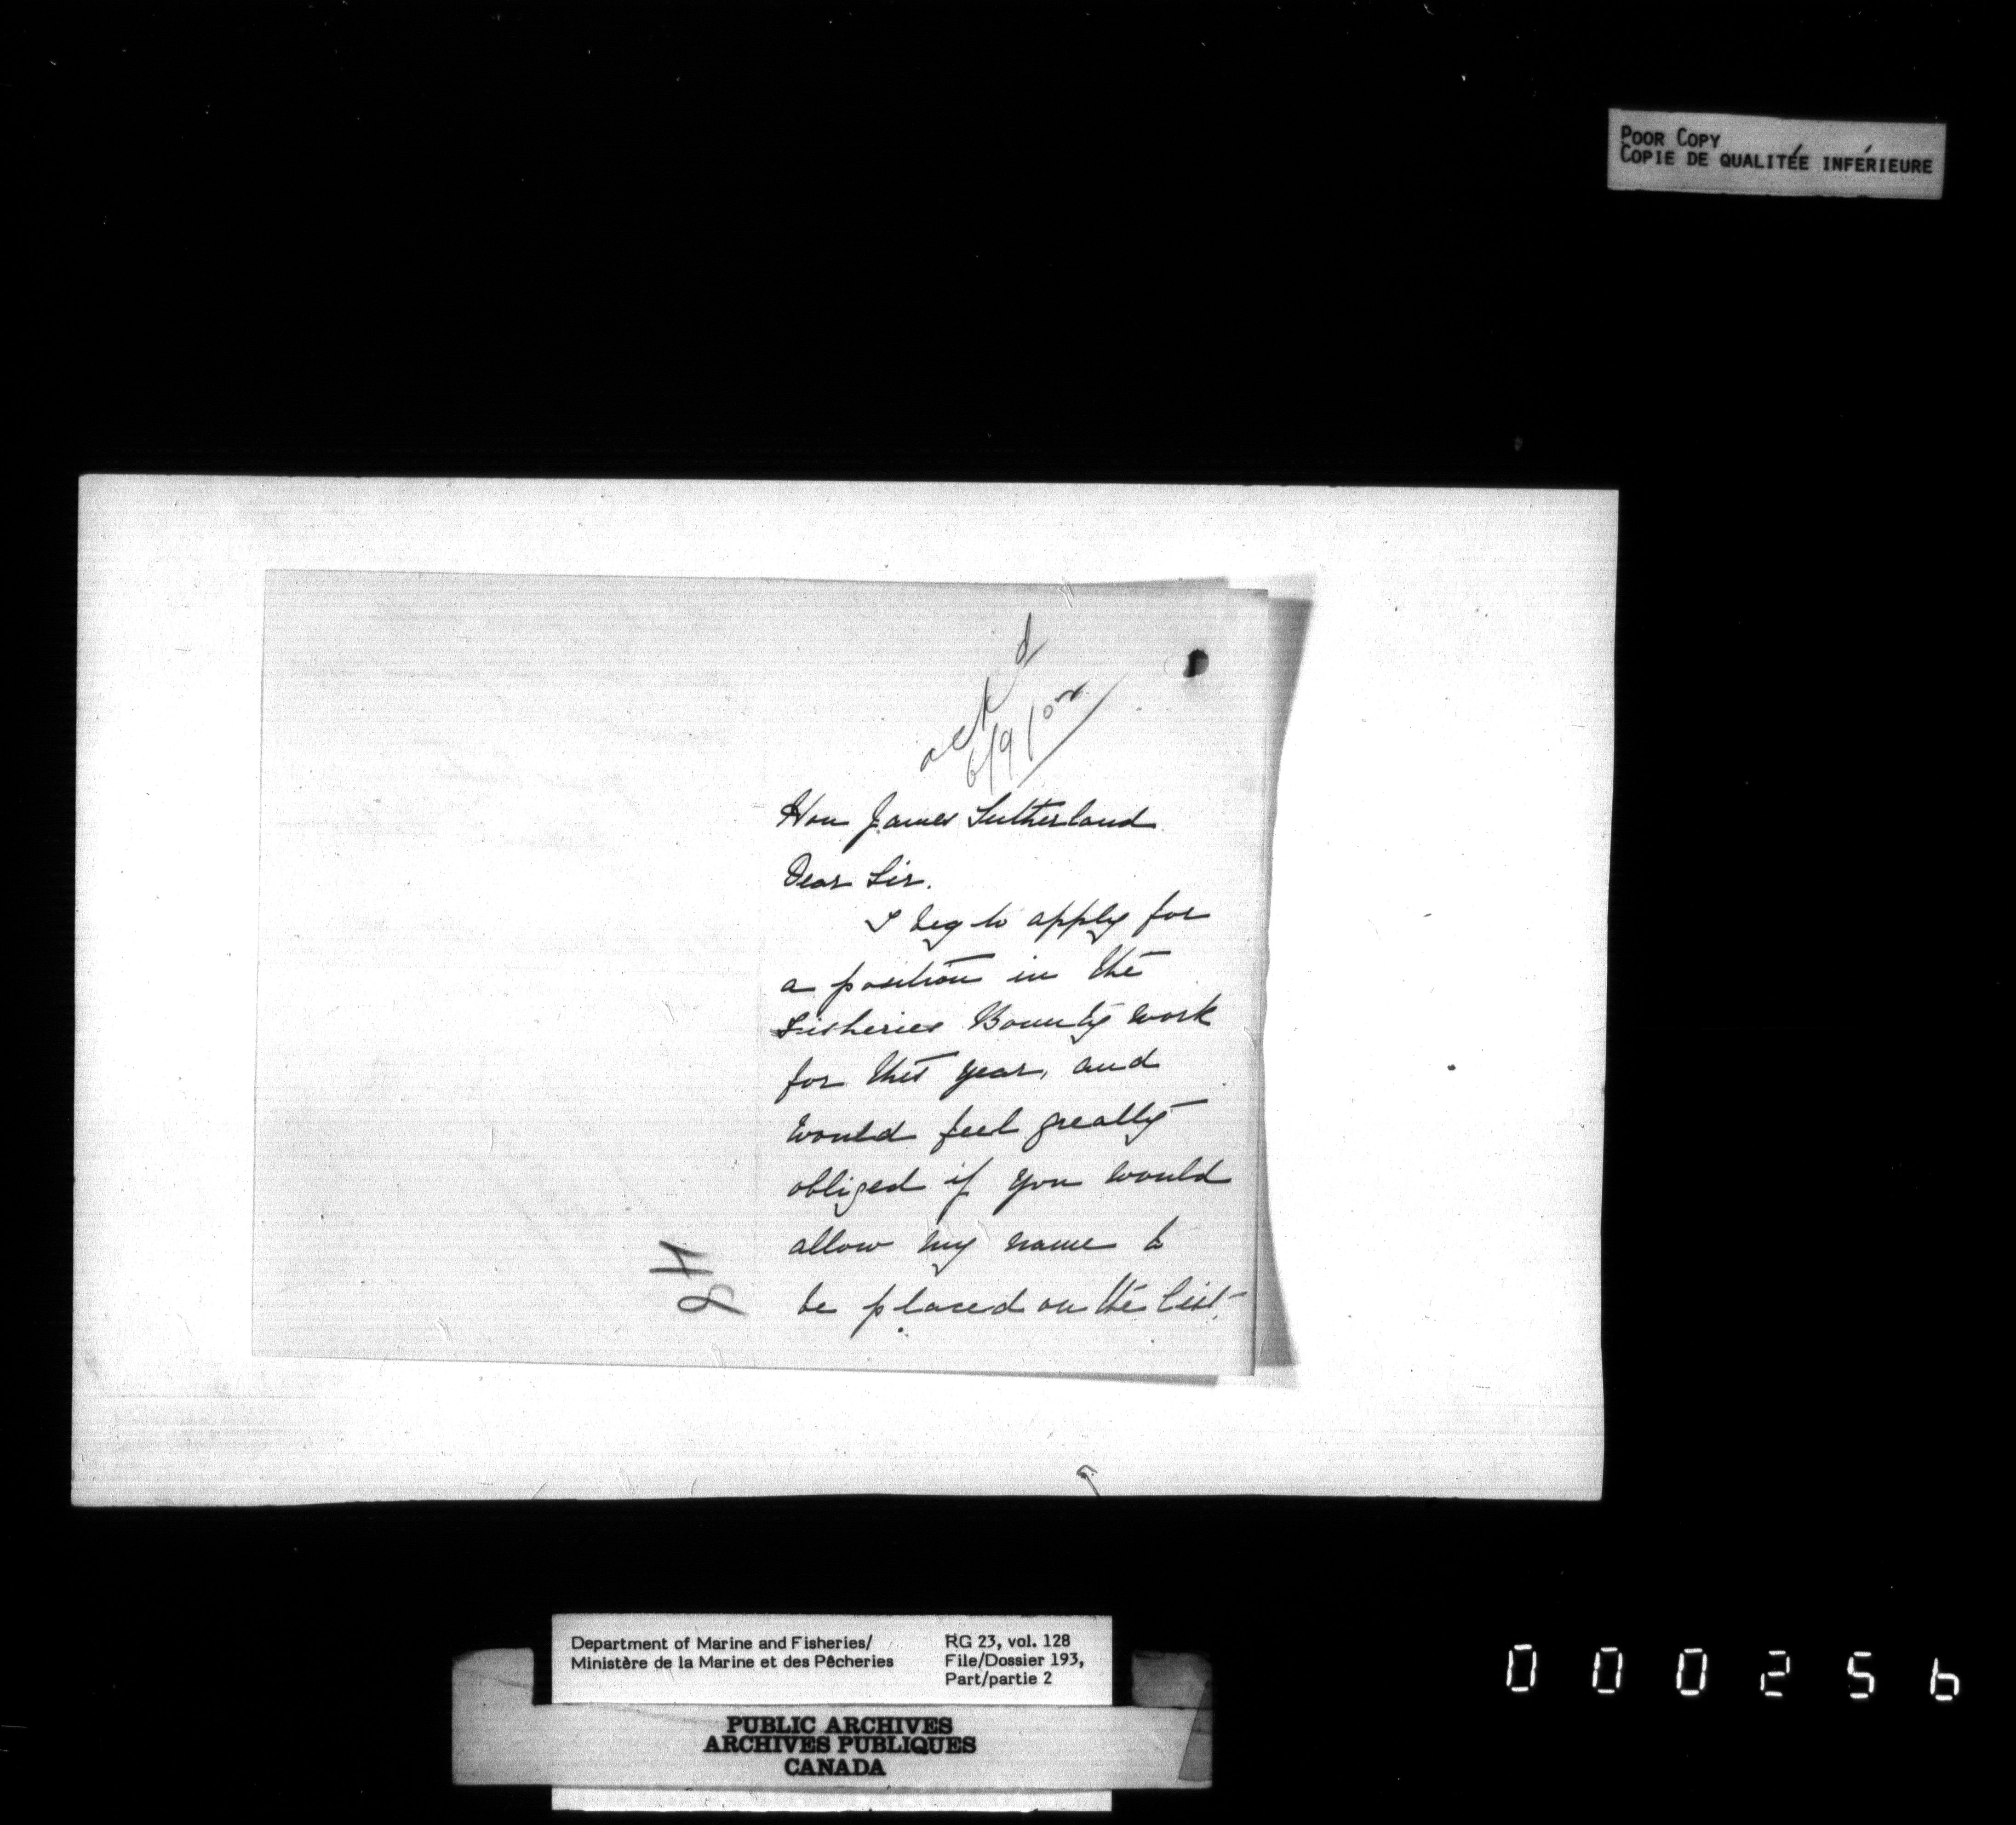 POOR COPY
COPIE DE QUALITÉE INFÉRIEURE
ack d
6/9/02
Hon James Sutherland
Dear Sir.
I beg to apply for
a position in the
Fisheries Bounty work
for this year, and
would feel greatly
obliged if you would
allow my name to
be placed on the list.
Department of Marine and Fisheries/
Ministère de la Marine et des Pêcheries
RG 23, vol. 128
File/Dossier 193,
Part/partie 2
PUBLIC ARCHIVES
ARCHIVES PUBLIQUES
CANADA
000256